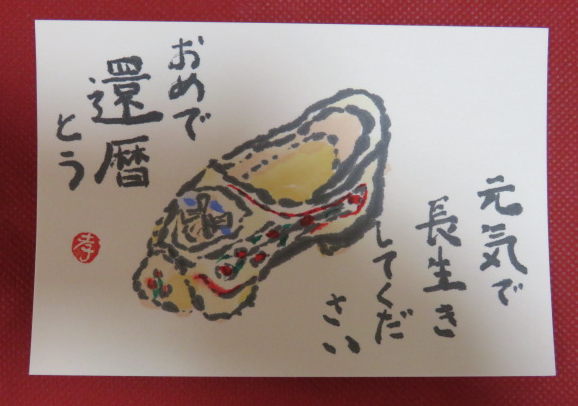 元気で
長生き
してくだ
さい
おめで
還暦
とう
孝